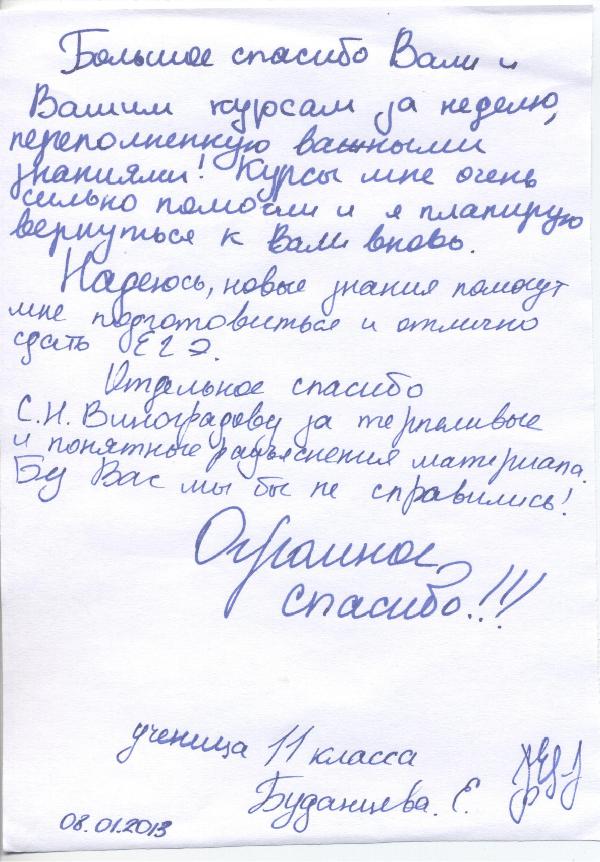 Большое спасибо Вам и
Вашим курсам за неделю,
переполненную важными
знаниями! Курсы мне очень
сильно помогли и я планирую
вернуться к Вам вновь.
Надеюсь, новые знания помогут
мне подготовиться и отлично
сдать ЕГЭ.
Отдельное спасибо
С.Н. Виноградову за терпеливые
и понятные разъяснения материала.
Без Вас мы бы не справились!
Огромное
спасибо!!!
ученица 11 класса
Буданцева. Е.
08.01.2013